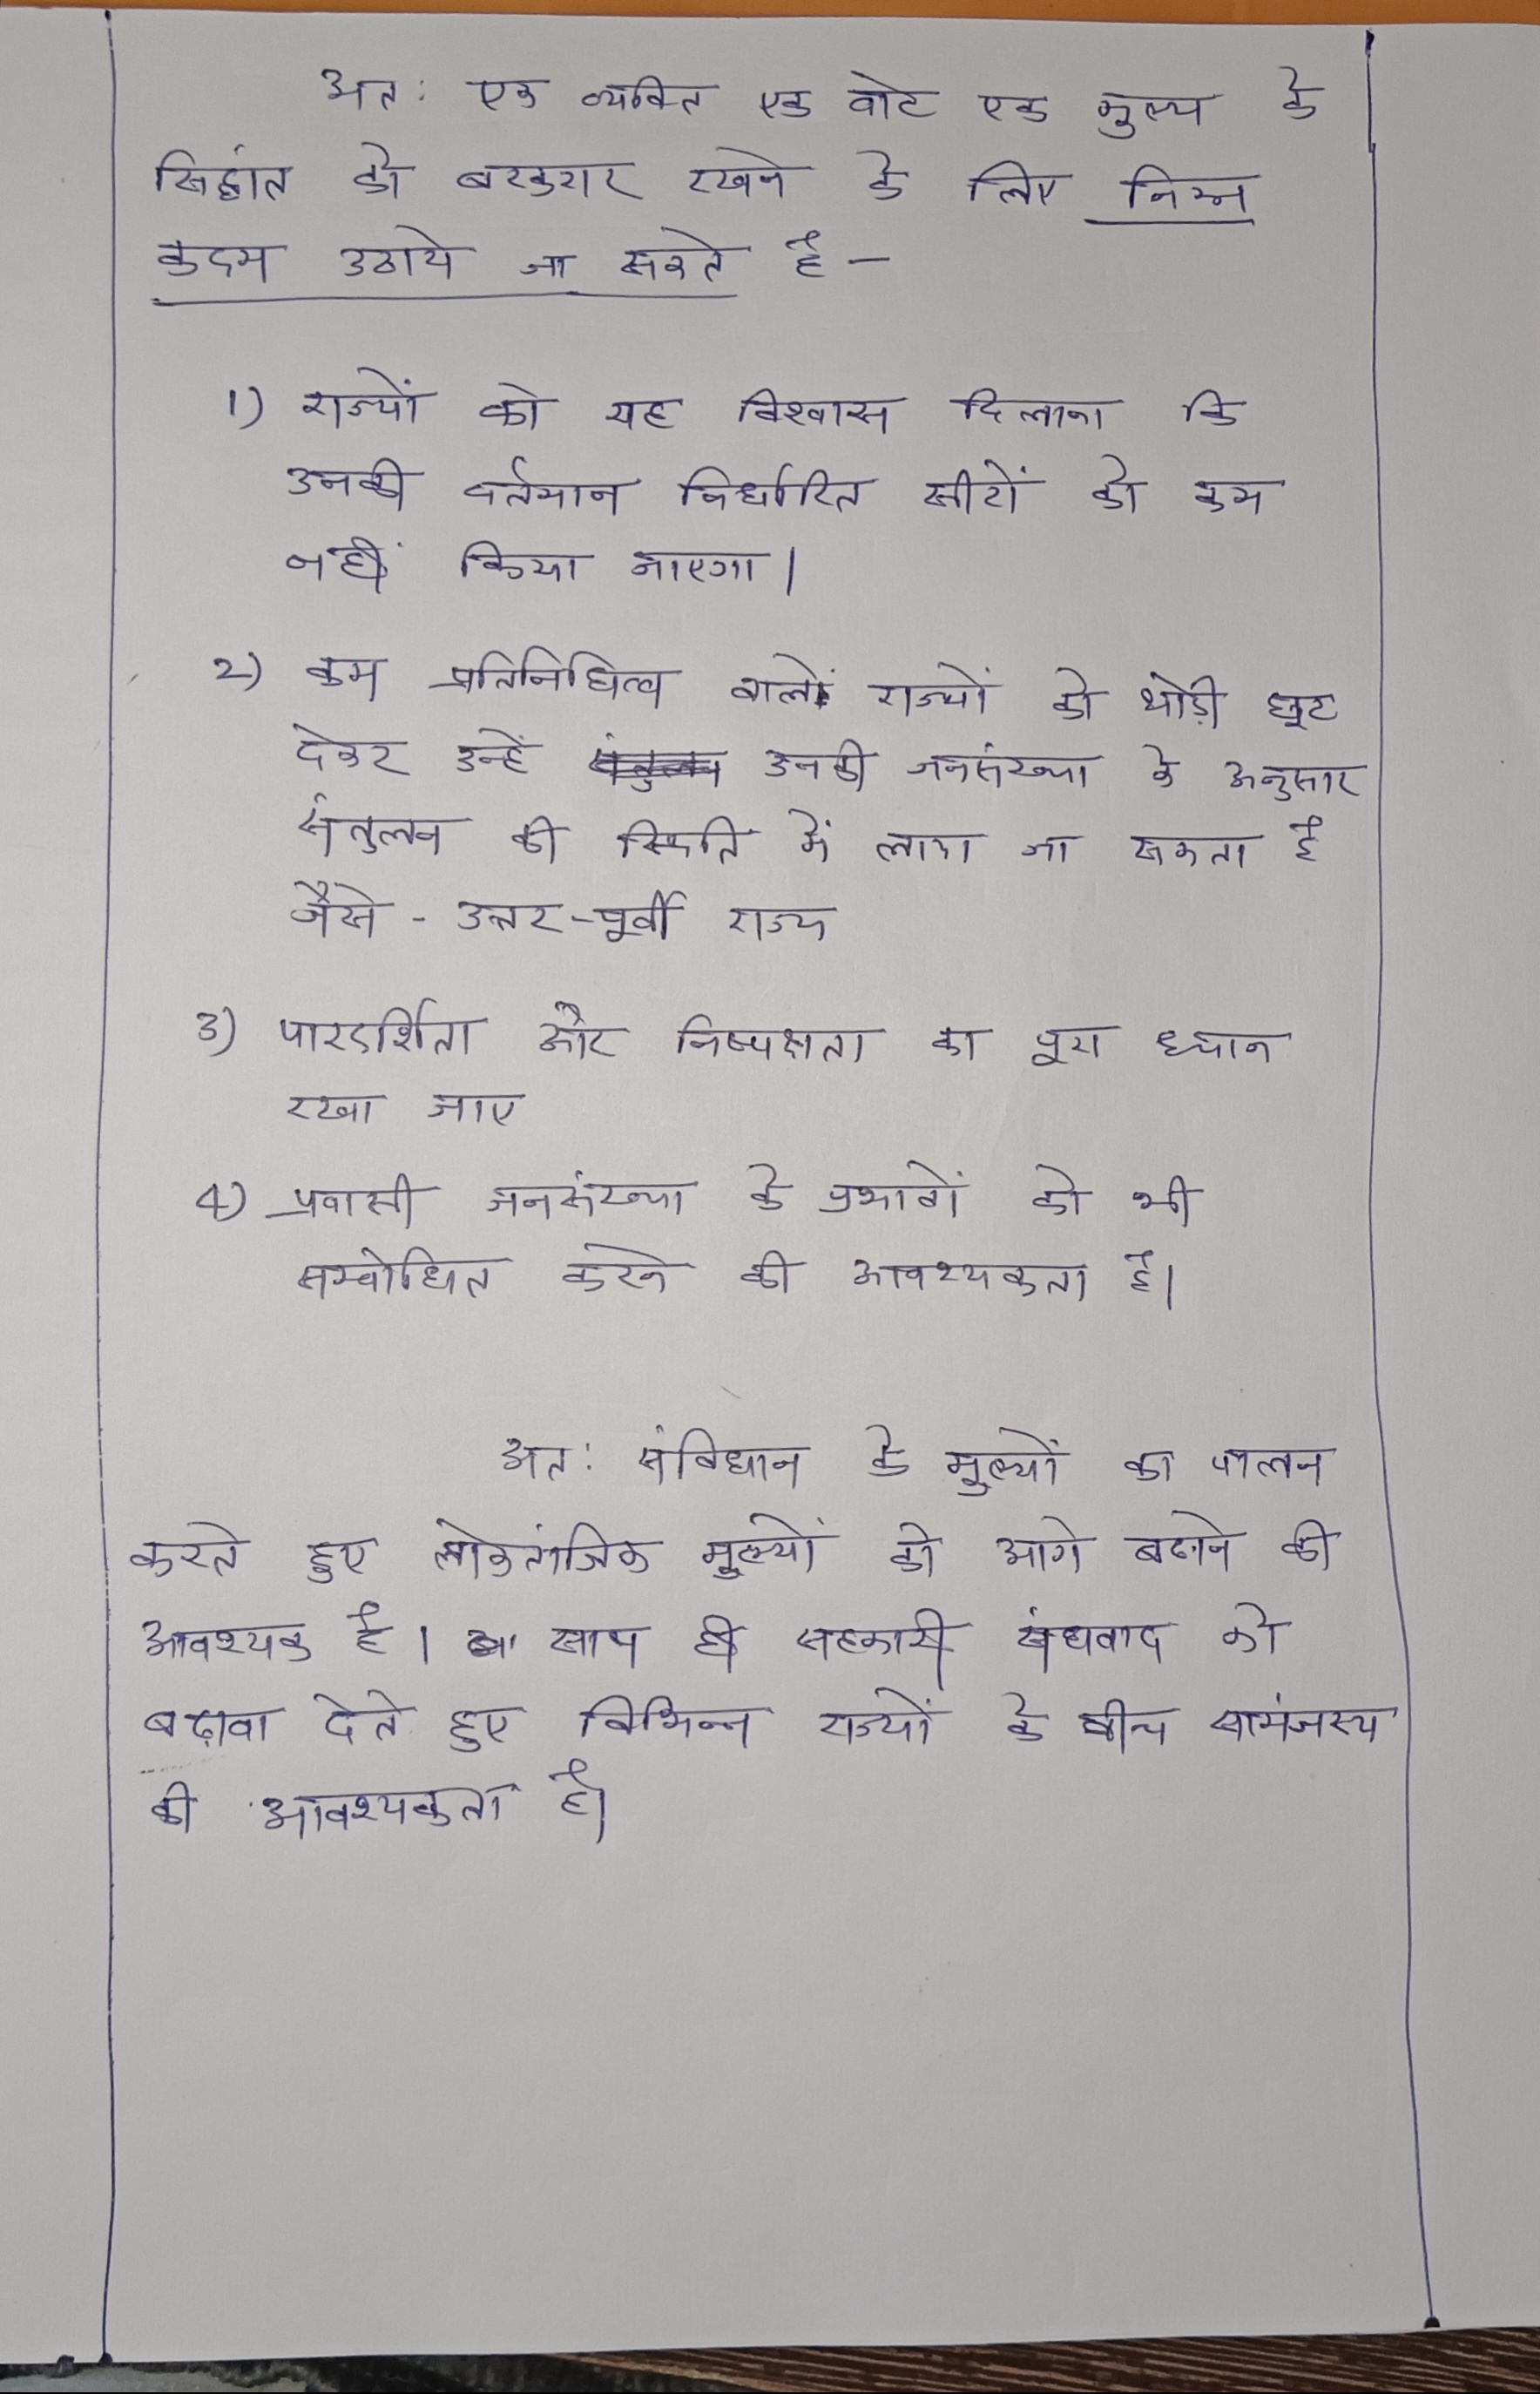 अत: एक व्यक्ति एक वोट एक मुल्य के
सिद्धांत को बरकरार रखने के लिए निम्न
कदम उठाये जा सकते है –
1) राज्यों को यह विश्वास दिलाना कि
उनकी वर्तमान निर्धारित सीटों को कम
नहीं किया जाएगा।
2) कम प्रतिनिधित्व वाले राज्यों को थोड़ी छूट
देकर उन्हें उनकी जनसंख्या के अनुसार
संतुलन की स्थिति में लाया जा सकता है
जैसे - उत्तर-पूर्वी राज्य
3) पारदर्शिता और निष्पक्षता का पूरा ध्यान
रखा जाए
4) प्रवासी जनसंख्या के प्रभावों को भी
सम्बोधित करने की आवश्यकता है।
अत: संविधान के मुल्यों का पालन
करते हुए लोकतांत्रिक मुल्यों को आगे बढाने की
आवश्यक है। साथ ही सहकारी संघवाद को
बढ़ावा देते हुए विभिन्न राज्यों के बीच सामंजस्य
की आवश्यकता है।